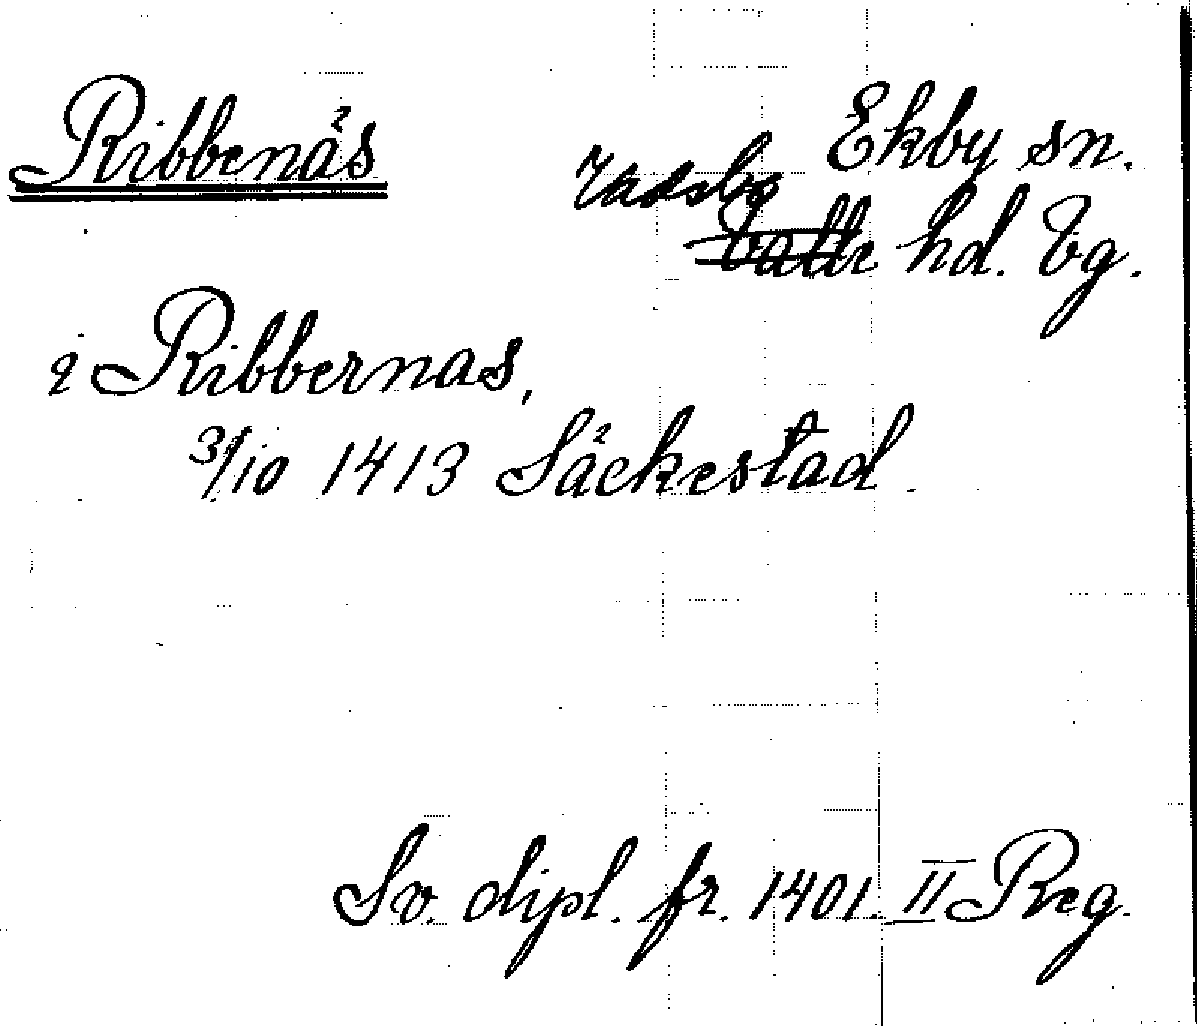 Ribbenäs
Ekby sn.
Vadsbo
Valle hd. Vg.
i Ribbernas,
3/10 1413 Säckestad
Sv. dipl. fr. 1401. II Reg.